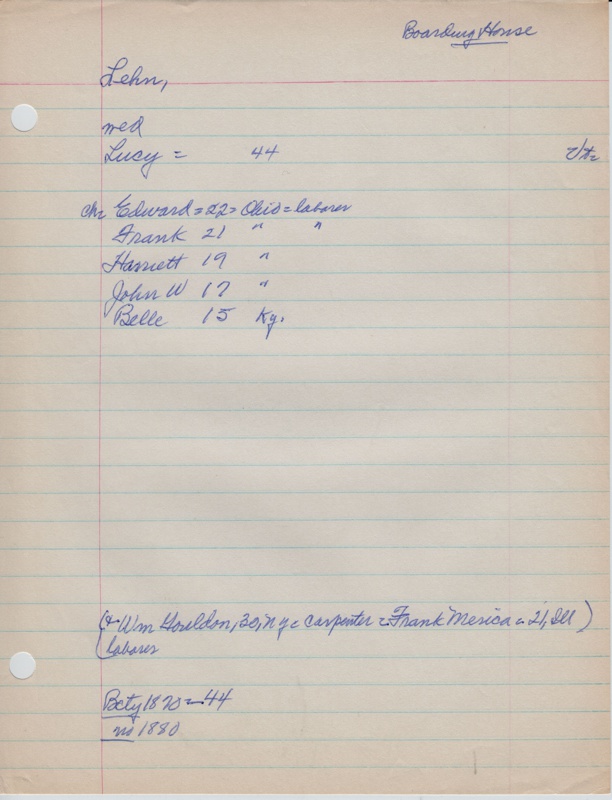 Boarding House
Lehn,
med
Lucy = 44 Vt=
ch= Edward = 22 = Ohio = laborer
Frank 21 " "
Harriett 19 "
John W 17 "
Belle 15 Ky.
(& Wm Houldon, 30, N Y = carpenter = Frank Merica = 21, Ill)
laborer
Bcty 1870 = 44
no 1880